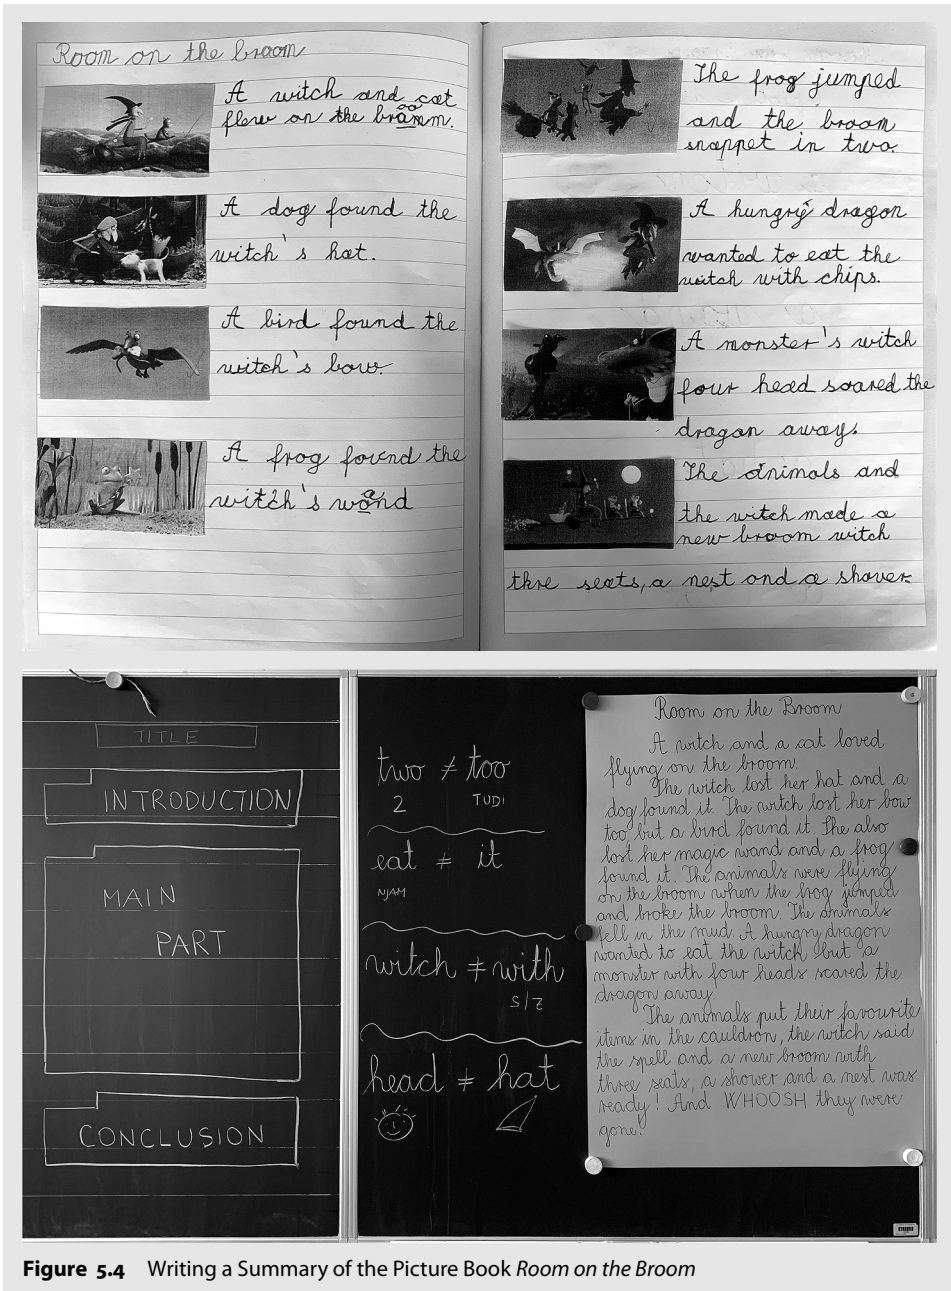 Room on the broom
A witch and cat
oo
flew on the bramm.
A dog found the
witch's hat.
A bird found the
witch's bow.
A frog found the
a
witch's wond
The frog jumped
and the broom
snappet in two.
A hungry dragon
wanted to eat the
witch with chips.
A monster's witch
four head scared the
dragon away.
The animals and
the witch made a
new broom witch
thre seats, a nest and a shover
TITLE
INTRODUCTION
MAIN
PART
CONCLUSION
two ≠ too
2 TUDI
eat ≠ it
NJAM
witch ≠ with
s/z
head ≠ hat
Room on the Broom
A witch and a cat loved
flying on the broom.
The witch lost her hat and a
dog found it. The witch lost her bow
too but a bird found it. She also
lost her magic wand and a frog
found it. The animals were flying
on the broom when the frog jumped
and broke the broom. The animals
fell in the mud. A hungry dragon
wanted to eat the witch but a
monster with four heads scared the
dragon away.
The animals put their favourite
items in the cauldron, the witch said
the spell and a new broom with
three seats, a shower and a nest was
ready! And WHOOSH they were
gone!
Figure 5.4 Writing a Summary of the Picture Book Room on the Broom